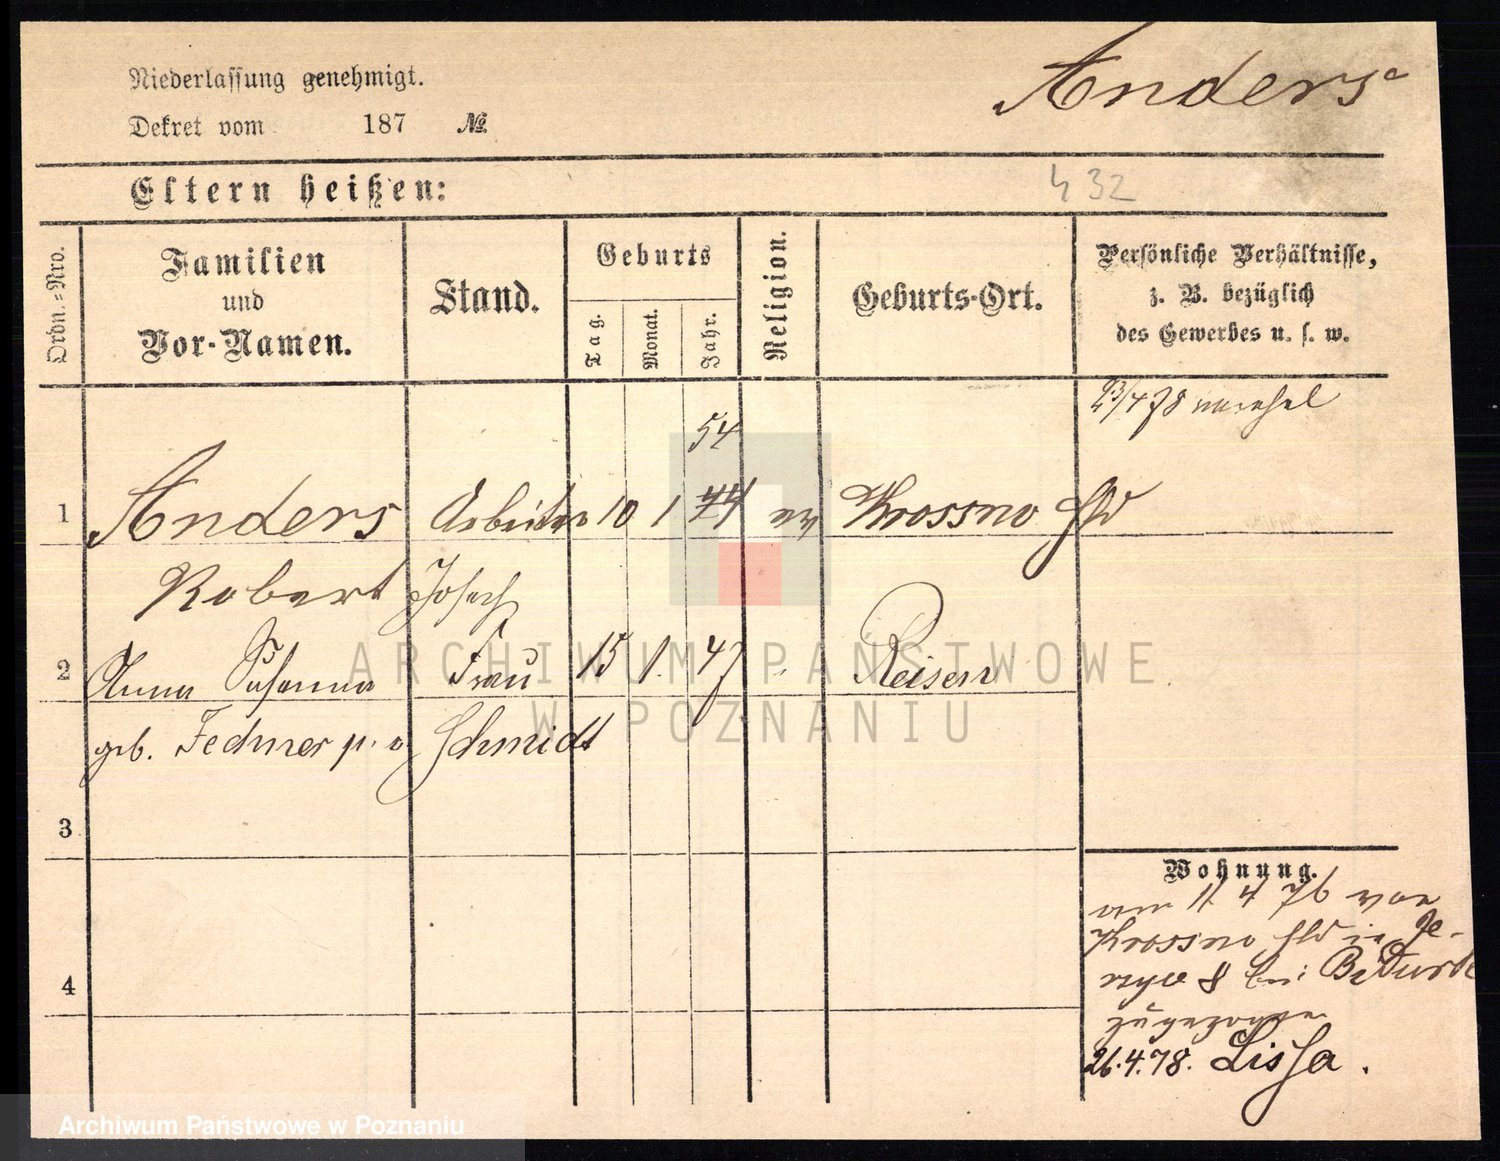 Anders
Niederlassung genehmigt.
Dekret vom 187 №
432
Eltern heißen:
Ordn.=Nro.
Familien
und
Vor-Namen.
Stand.
Geburts
Tag.
Monat.
Jahr.
Religion.
Geburts-Ort.
Persönliche Verhältnisse,
z. B. bezüglich
des Gewerbes u. s. w.
23/4 78
54
1 Anders Arbeiter 10 1 44 ev Krossno Hld
Robert Josef
2 Anna Susanna Frau 15 1. 47 Reisen
geb. Fechner Schmidt
3
4
Wohnung.
11 4 76 von
Krossno Hld in Je-
8 bei
zugezogen
26.4.78. Lissa.
ARCHIWUM PAŃSTWOWE
W POZNANIU
Archiwum Państwowe w Poznaniu